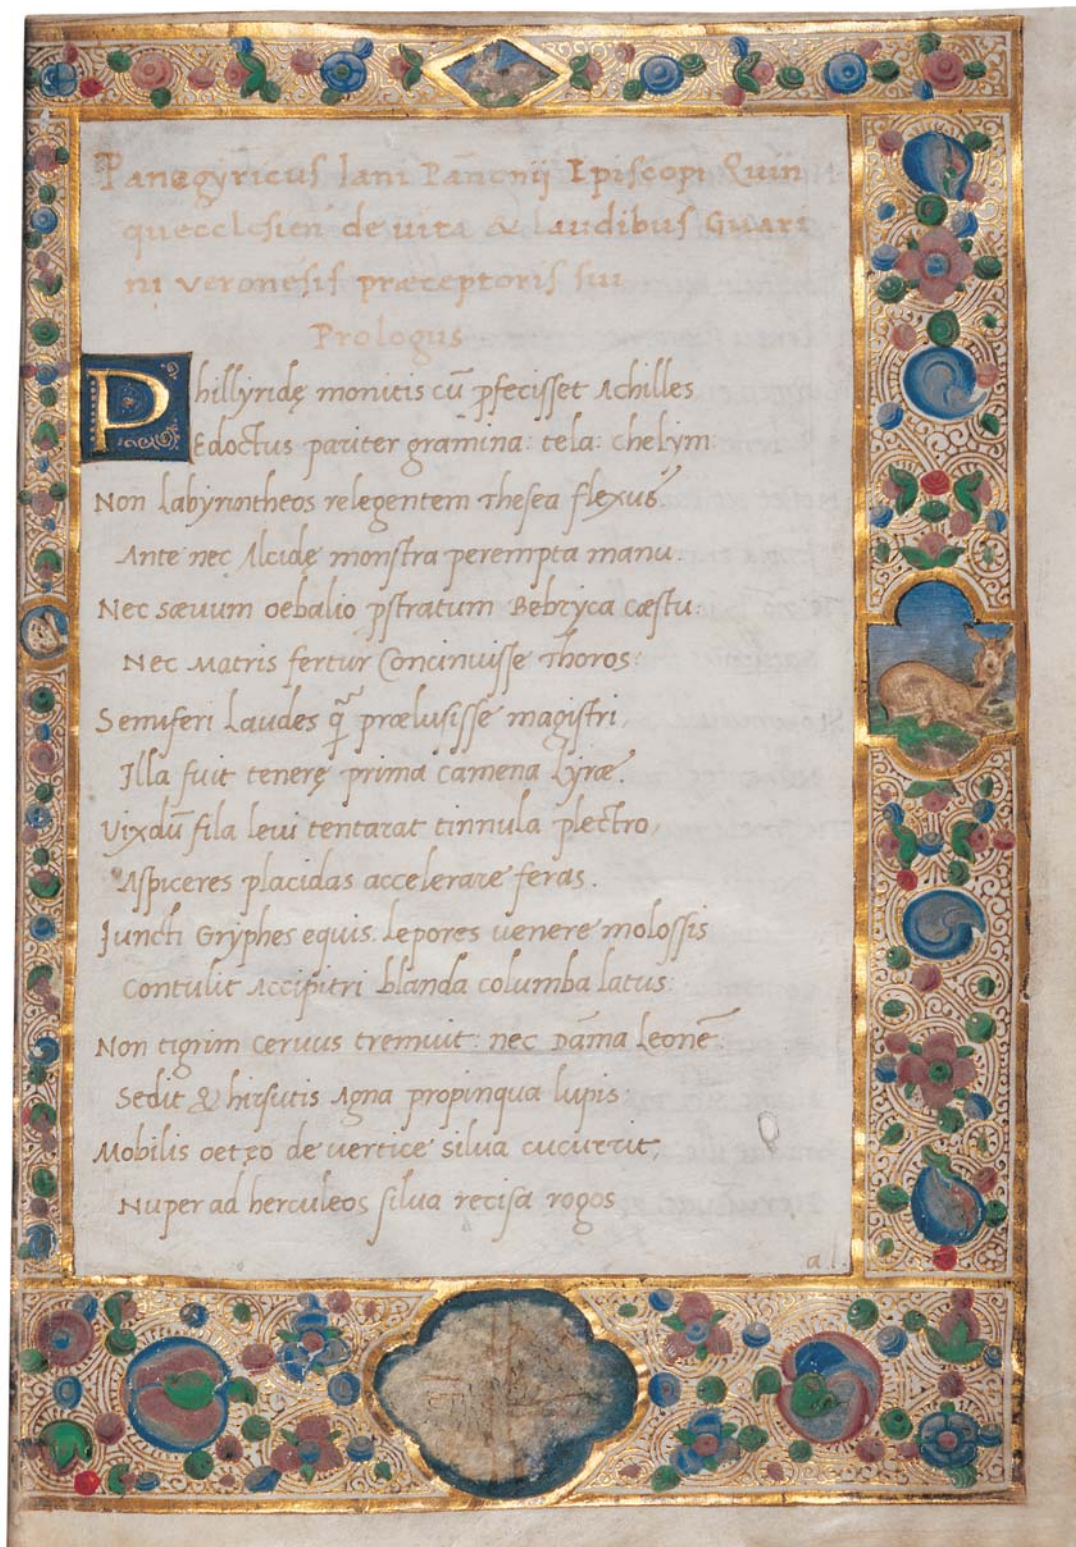 Panegyricus Iani Pañonij Episcopi Quin
quecclesien̄ de uita & laudibus Guari
ni veronesis præceptoris sui
Prologus
Phillyridę monitis cū pfecisset Achilles
Edoctus pariter gramina: tela: chelym:
Non labyrintheos relegentem Thesea flexus
Ante nec Alcidę monstra perempta manu.
Nec sæuum oebalio pstratum Bebryca cæstu:
Nec Matris fertur Concinuisse Thoros:
Semiferi Laudes q̃ prælusisse magistri,
Illa fuit tenerę prima camena Lyræ.
Vixdū fila leui tentarat tinnula plectro,
Aspiceres placidas accelerare feras.
Juncti Gryphes equis. Lepores uenere molossis
Contulit Accipitri blanda columba latus:
Non tigrim ceruus tremuit: nec Dama Leonē.
Sedit & hirsutis Agna propinqua lupis:
Mobilis oetęo de uertice silua cucurrit,
Nuper ad herculeos silua recisa rogos
a.1.